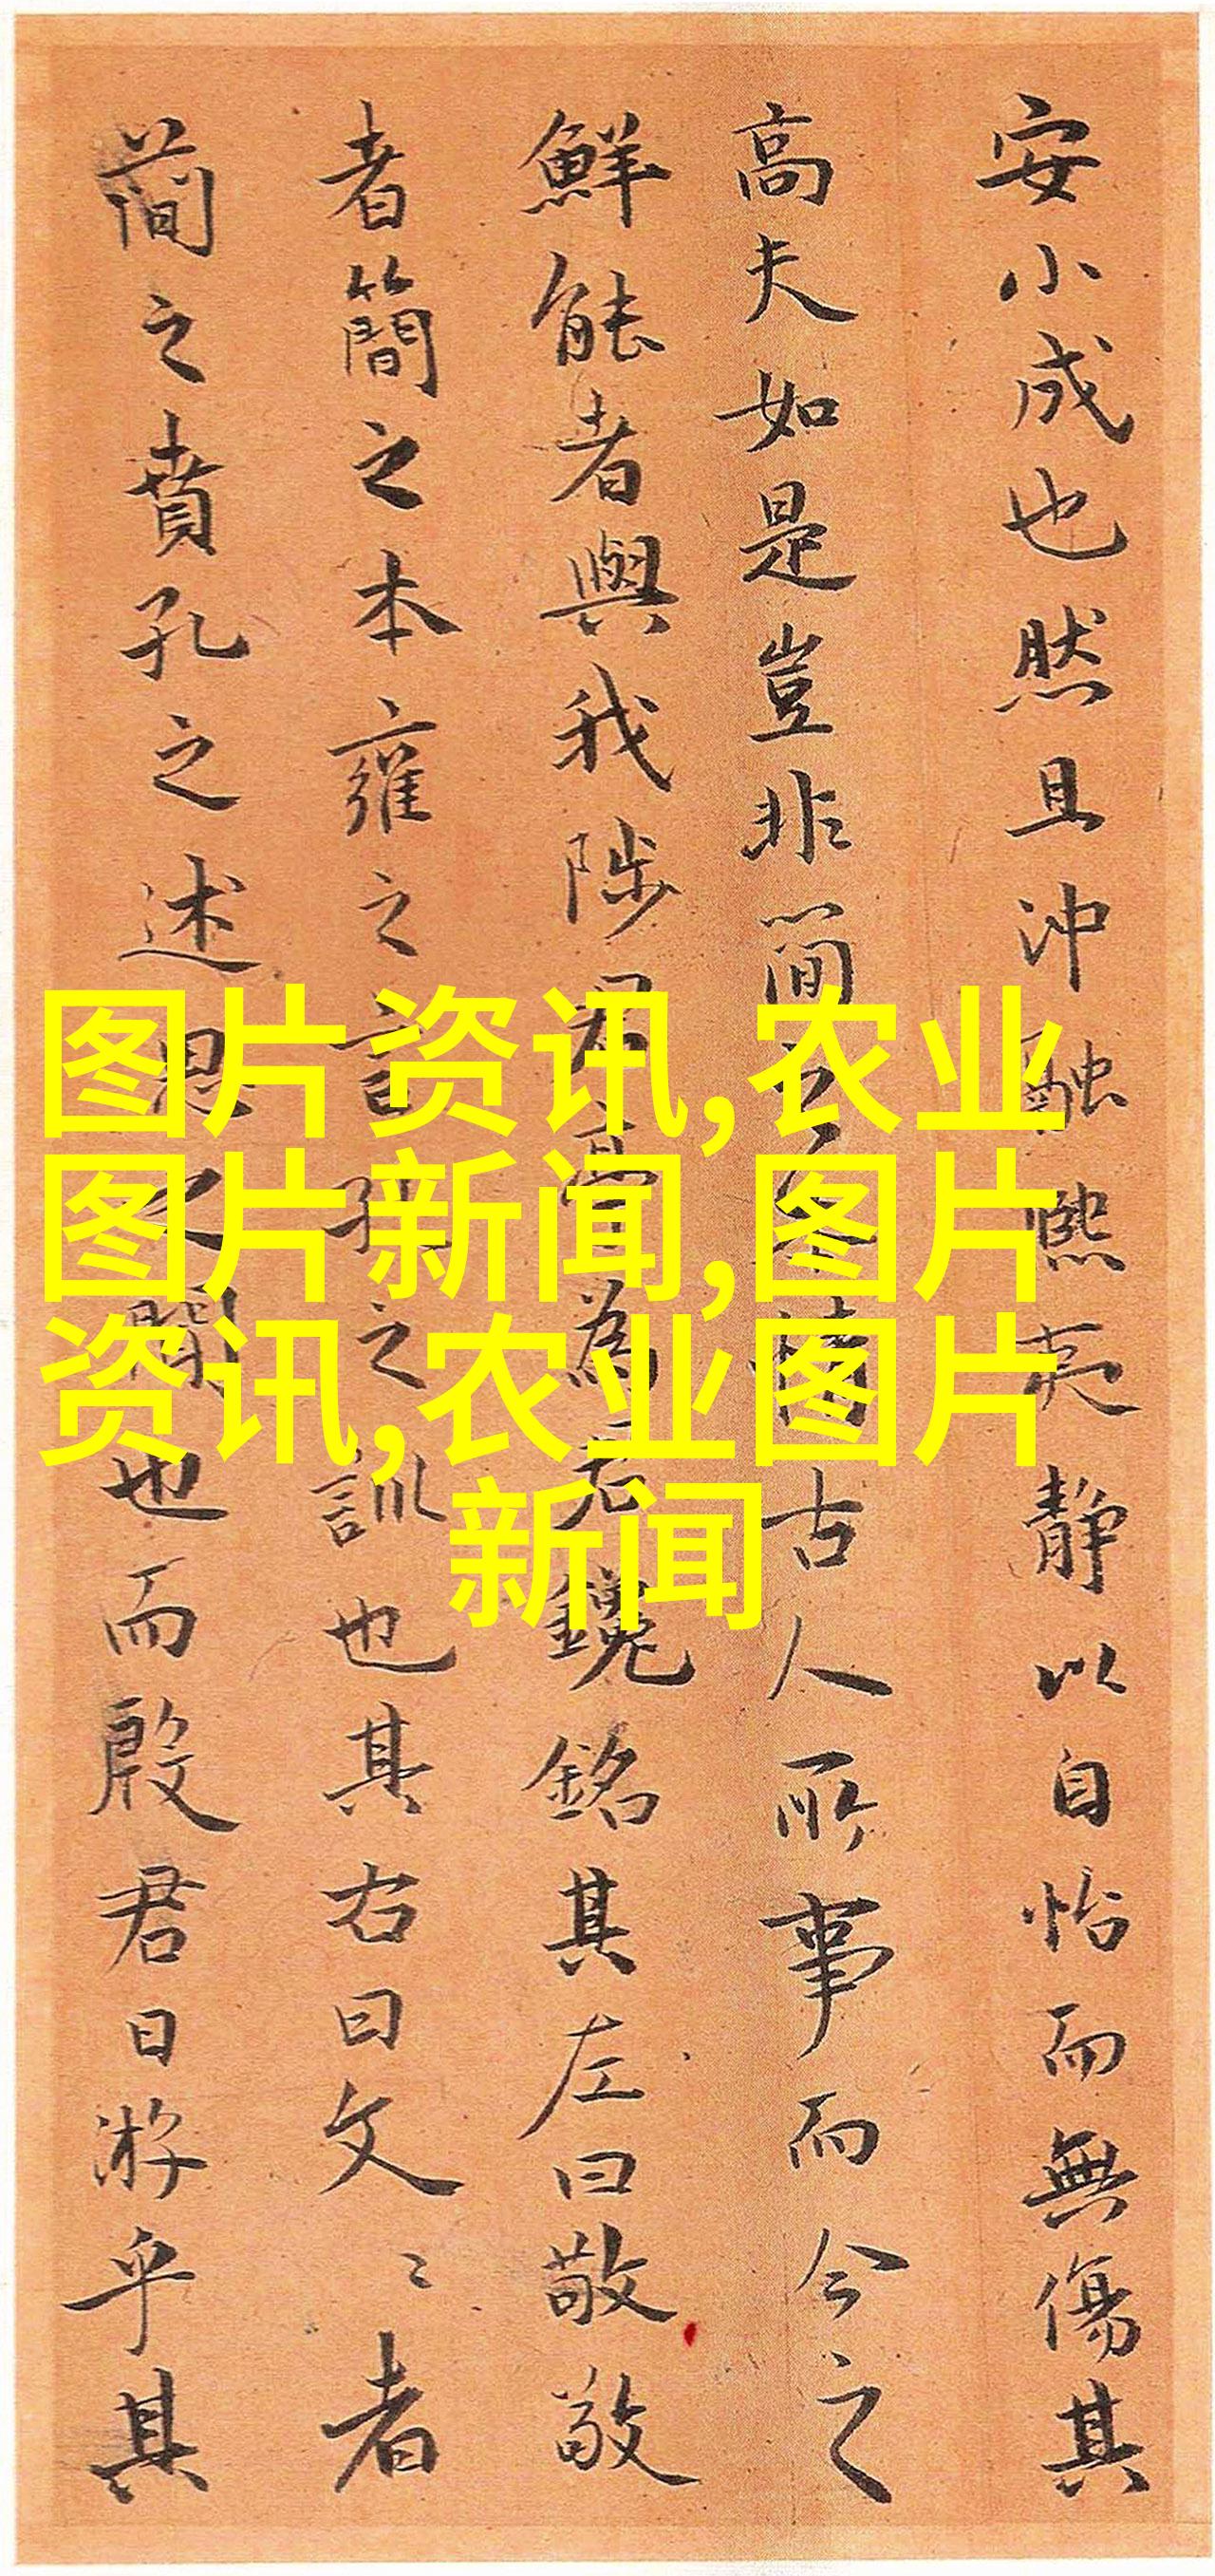 安小成也然且沖融熙夷静以自怡而無傷其
高夫如是豈非簡古人所事而今之
鮮能者與我陟君為銘其左曰敬敬
者簡之本雍之言之訓也其右曰文〻者
簡之賁孔之述思之闇也而殷君日游乎其
图片资讯,农业
图片新闻,图片
资讯,农业图片
新闻